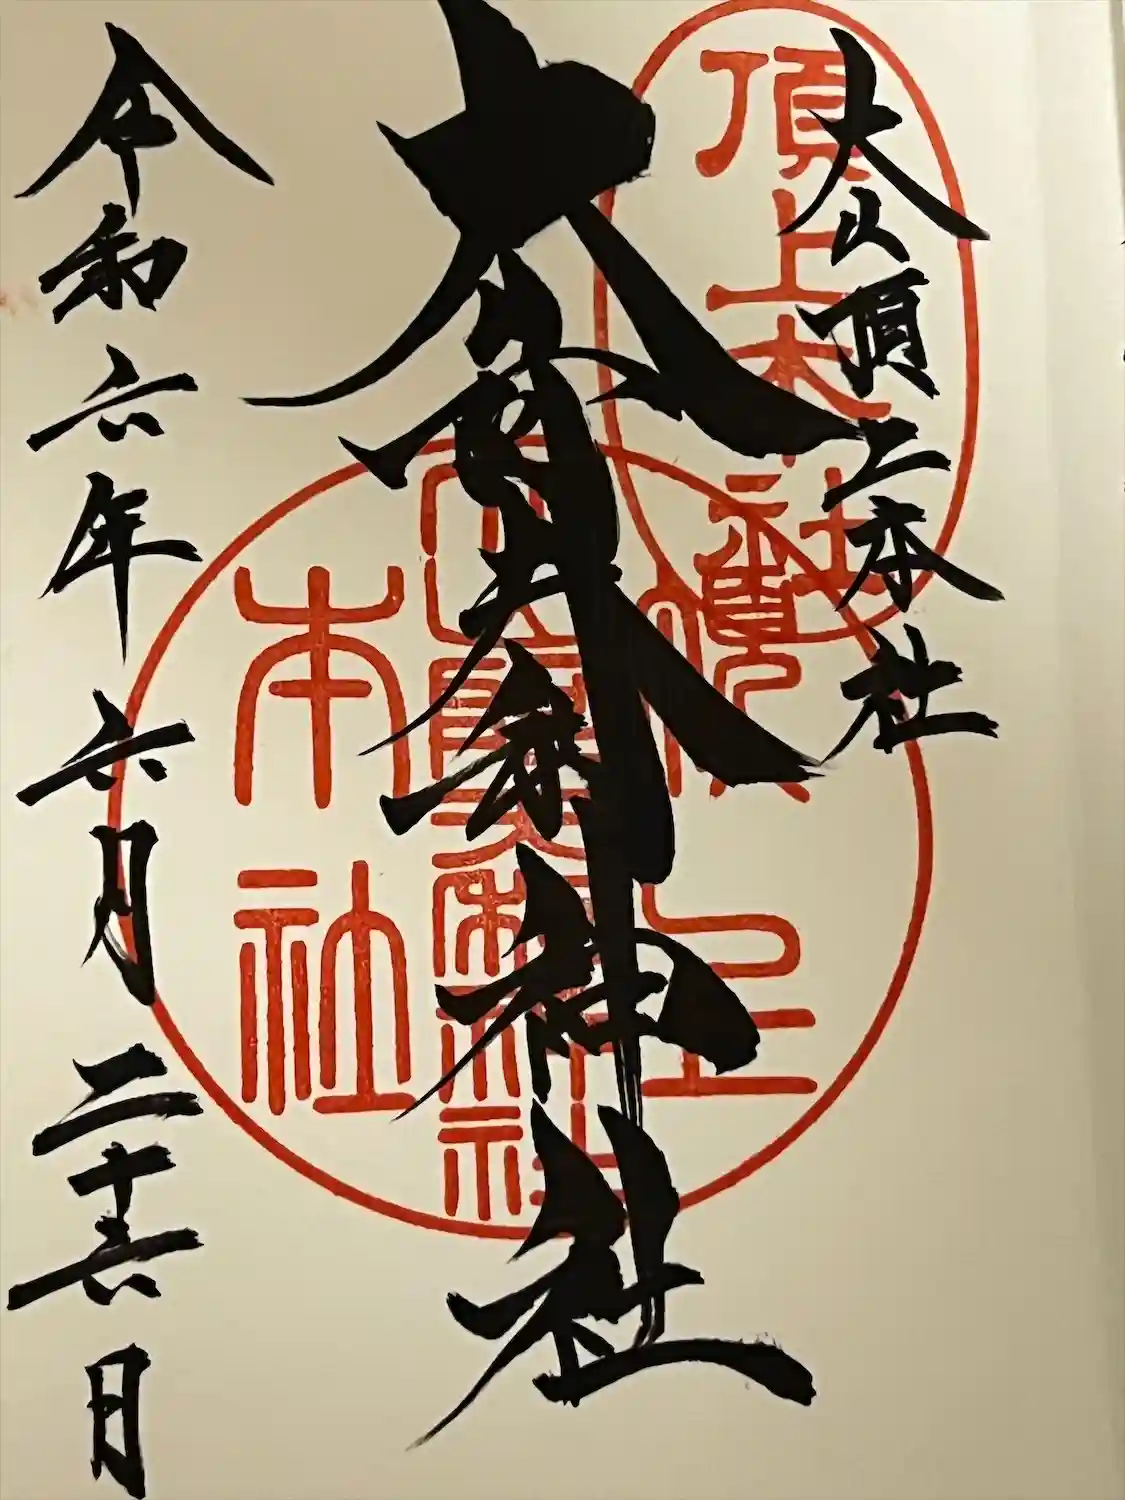 大山頂上本社
大山阿夫利神社
令和六年六月二十六日
頂上本社
頂上
大山阿夫利神社
本社